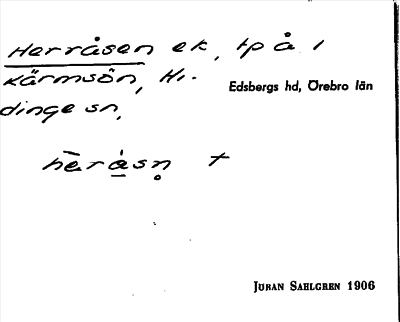 Herråsen ek, tp å i
Kärmsön, Hi-
dinge sn,
Edsbergs hd, Örebro län
hèråsn̥ +
JÖRAN SAHLGREN 1906